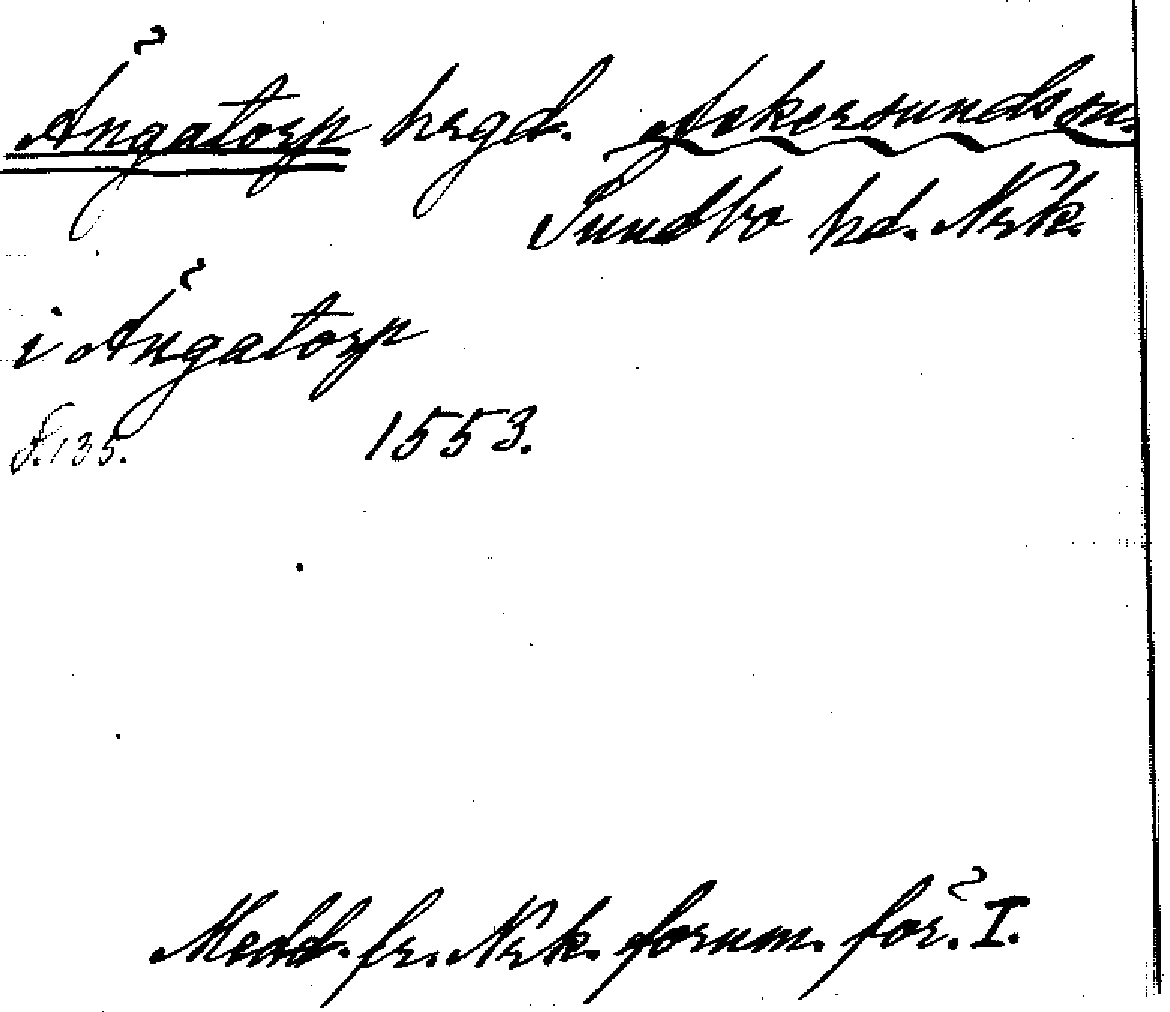 Ängatorp hrgd. Askersunds sn.
Sundbo hd. Nrk.
i Ängatorp
s. 135. 1553.
Medd. fr. Nrk. fornm. för. I.